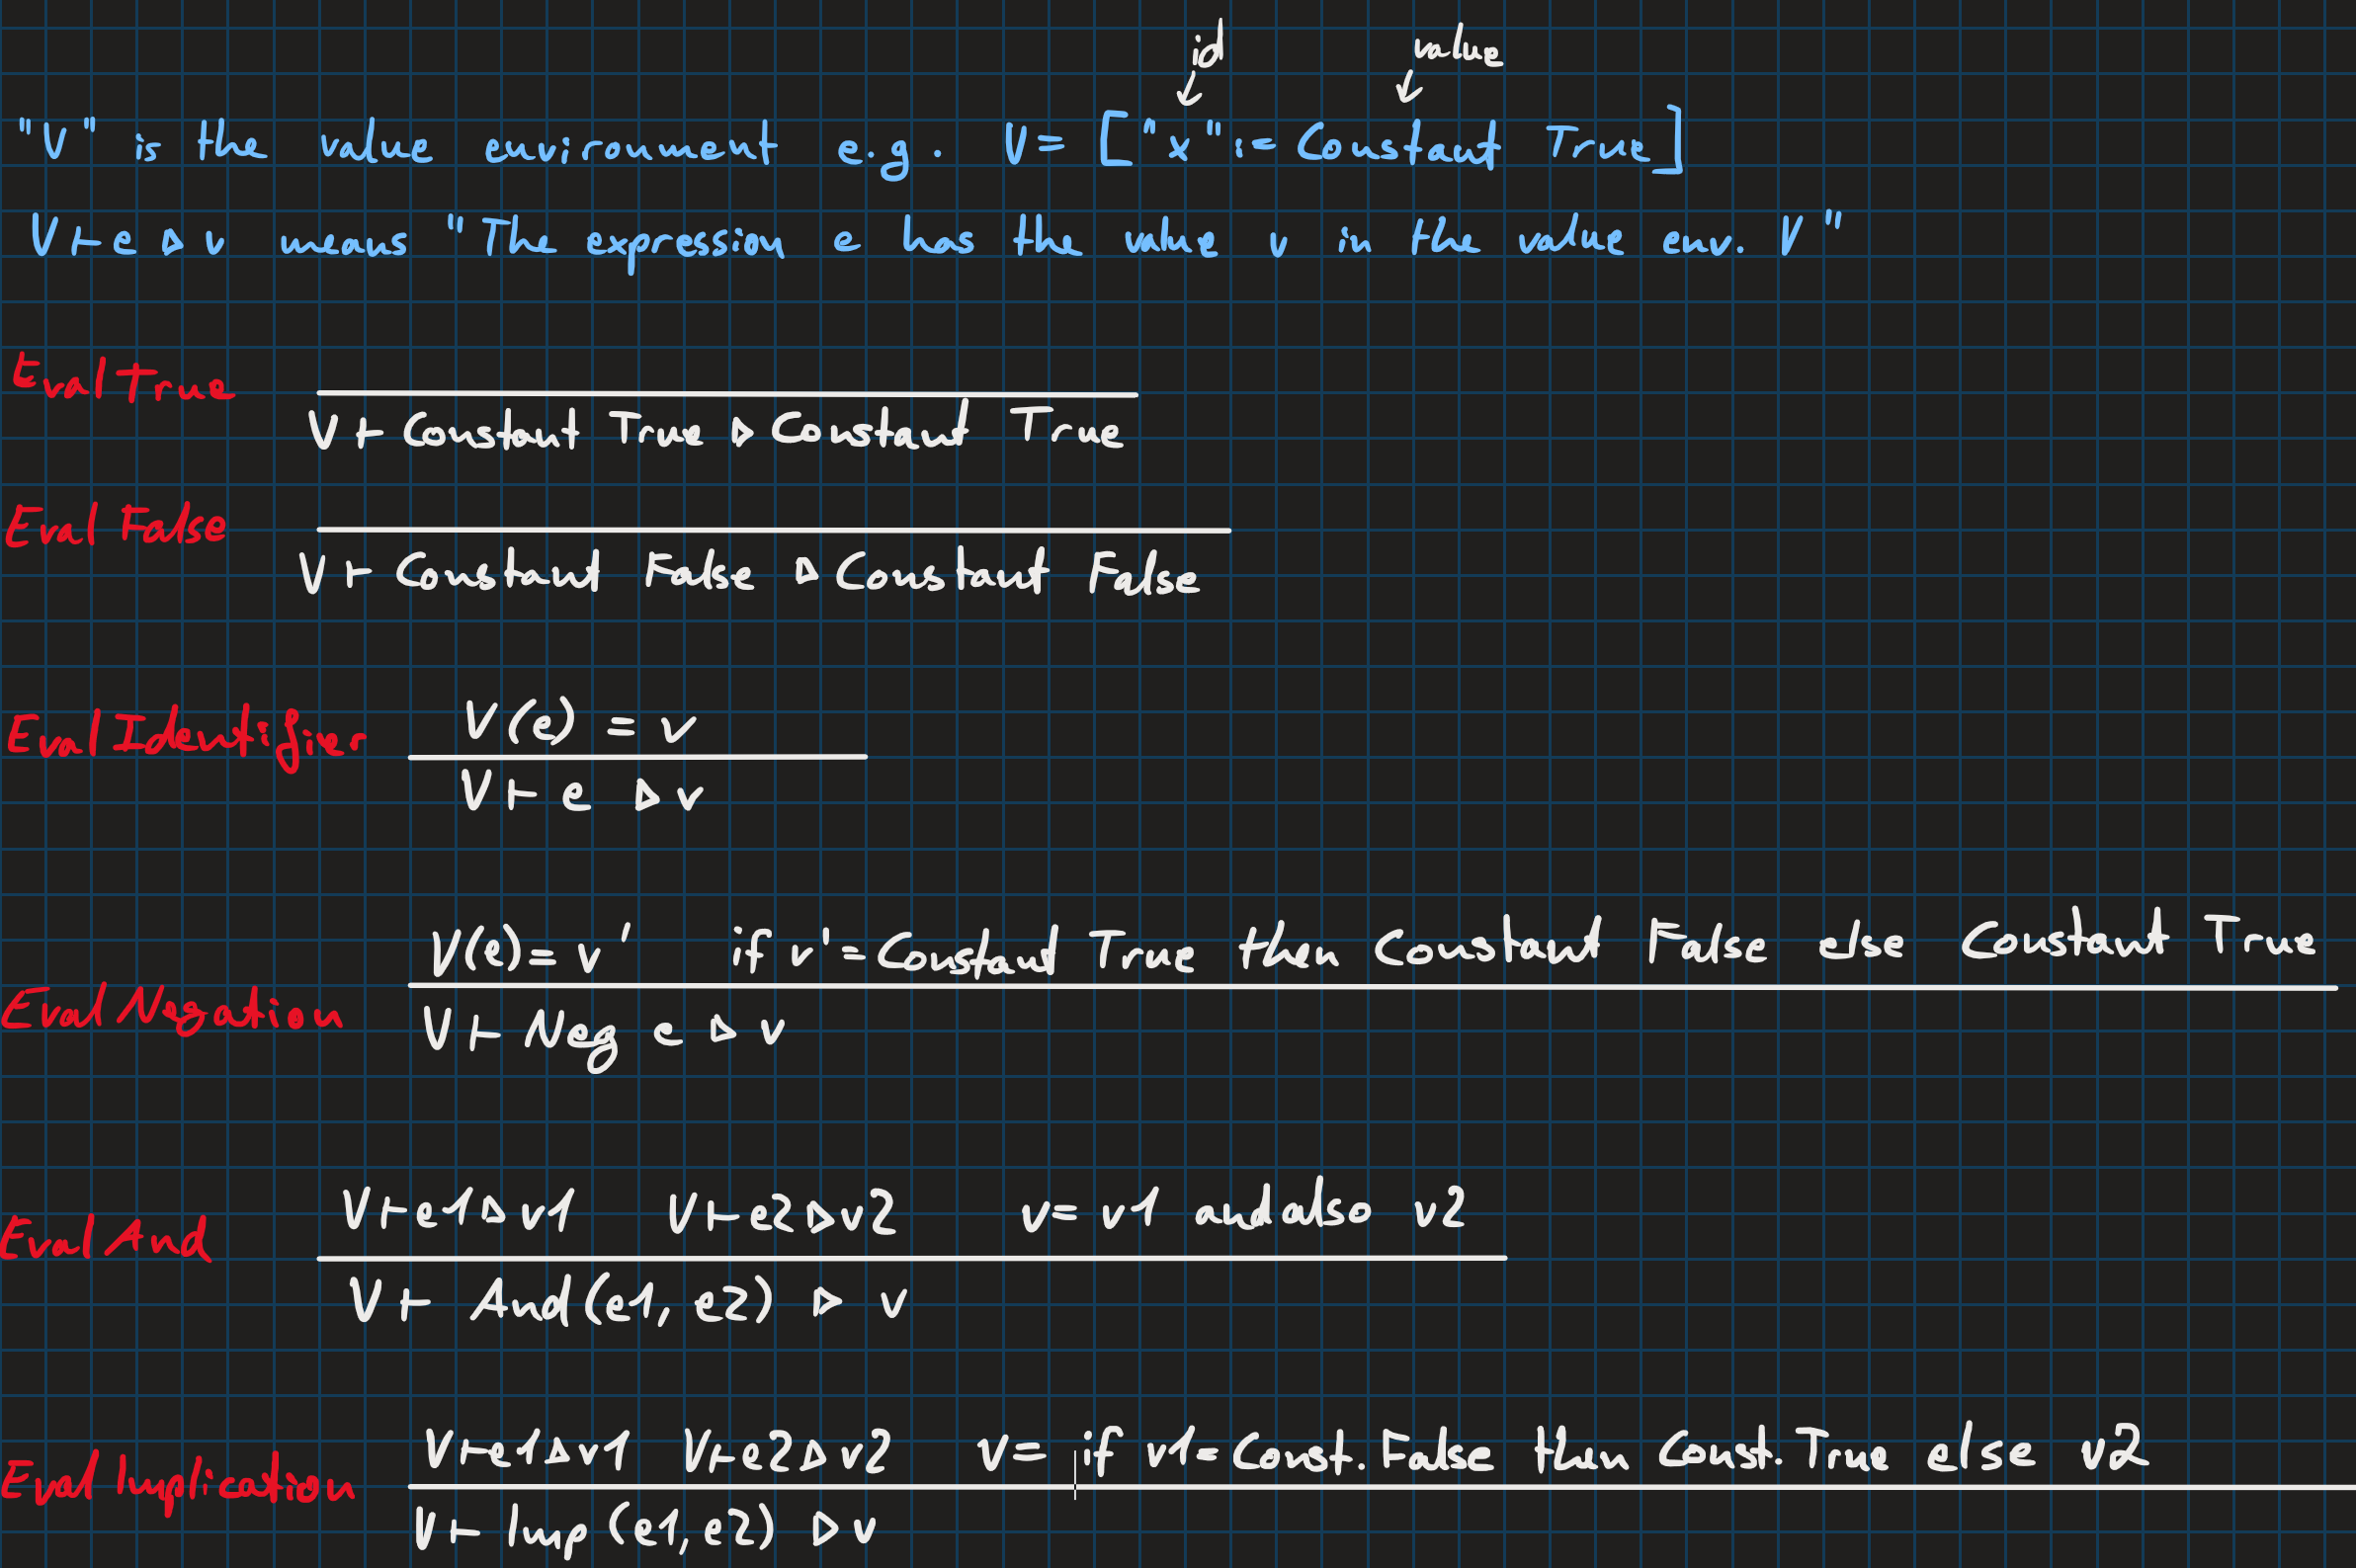 id value
"V" is the value environment e.g. V = ["x" := Constant True]
V ⊢ e ▷ v means "The expression e has the value v in the value env. V"
Eval True
V ⊢ Constant True ▷ Constant True
Eval False
V ⊢ Constant False ▷ Constant False
Eval Identifier
V(e) = v
V ⊢ e ▷ v
V(e) = v' if v' = Constant True then Constant False else Constant True
Eval Negation
V ⊢ Neg e ▷ v
V ⊢ e1 ▷ v1 V ⊢ e2 ▷ v2 v = v1 andalso v2
Eval And
V ⊢ And(e1, e2) ▷ v
V ⊢ e1 ▷ v1 V ⊢ e2 ▷ v2 v = if v1 = Const. False then Const. True else v2
Eval Implication
V ⊢ Imp (e1, e2) ▷ v